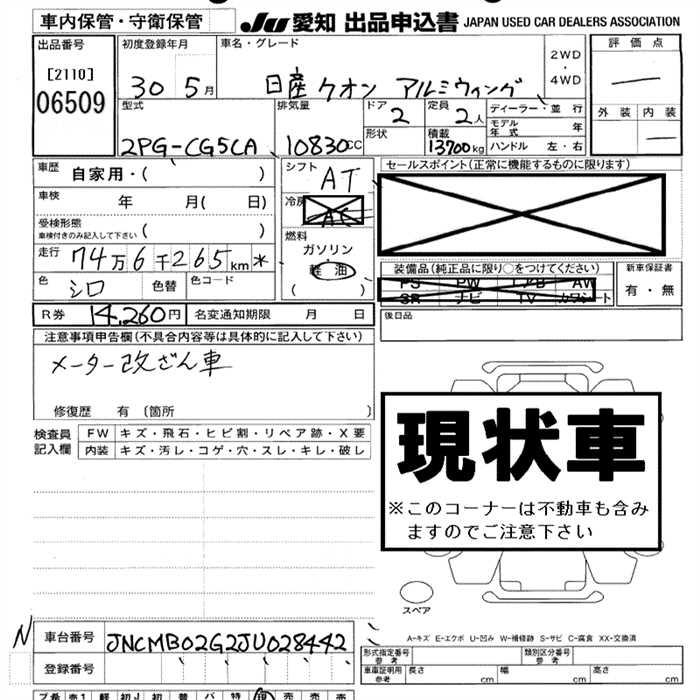 車内保管・守衛保管
JU 愛知 出品申込書 JAPAN USED CAR DEALERS ASSOCIATION
出品番号
[2110]
06509
初度登録年月
30 5月
車名・グレード
日産 クオン アルミウィング
2WD
・
4WD
評価点
外装 内装
型式
2PG-CG5CA
排気量
10830CC
ドア
2
形状
定員
2人
積載
13700kg
ディーラー・並行
モデル年式 年
ハンドル 左・右
車歴 自家用・( )
車検 年 月( 日)
受検形態
車検付きのみ記入して下さい ( )
走行 74万6千265km *
色 シロ 色替 色コード
シフト
AT
冷房
AC
燃料
ガソリン
軽油
( )
セールスポイント(正常に機能するものに限ります)
装備品(純正品に限り○をつけてください)
PS PW エアB AW
SR ナビ TV カワシート
新車保証書
有・無
後日品
R券 14,260円 名変通知期限 月 日
注意事項申告欄(不具合内容等は具体的に記入して下さい)
メーター改ざん車
修復歴 有 〔箇所 〕
検査員記入欄
FW キズ・飛石・ヒビ割・リペア跡・X要
内装 キズ・汚レ・コゲ・穴・スレ・キレ・破レ
現状車
※このコーナーは不動車も含み
ますのでご注意下さい
スペア
A-キズ E-エクボ U-凹み W-補修跡 S-サビ C-腐食 XX-交換済
N
車台番号 JNCMB02G2JU028442
登録番号
形式指定番号
参考
類別区分番号
参考
車庫証明用
参考
長さ cm 幅 cm 高さ cm